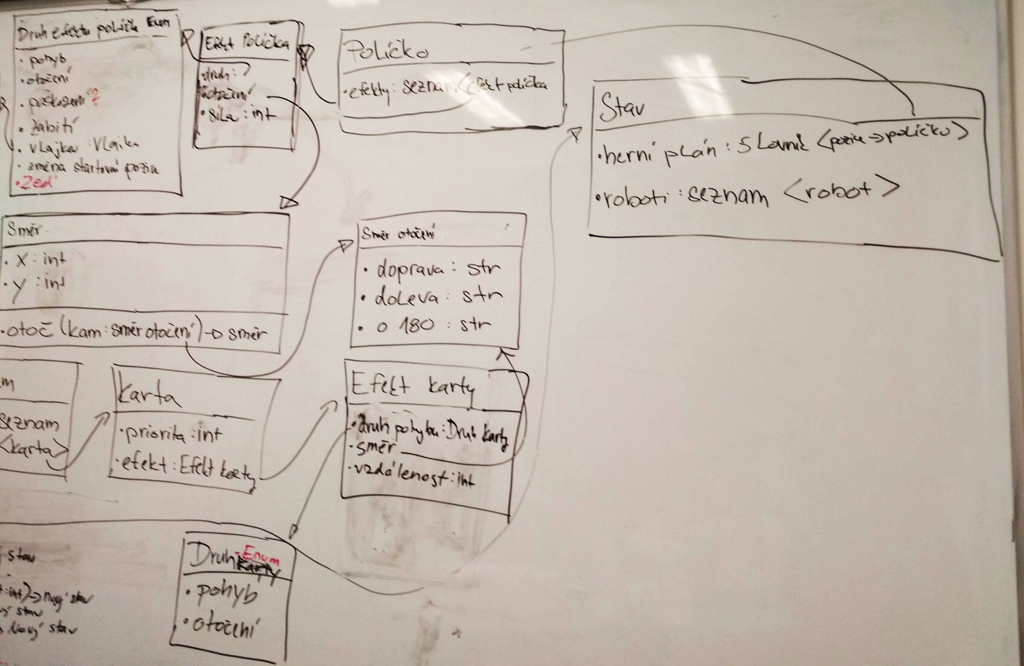 Druh efektu políčk Enum
• pohyb
• otočení
• poškození?
• zabití
• vlajka : Vlajka
• změna startovní pozice
• Zeď
Efekt Políčka
druh:
otočení
• síla : int
Políčko
• efekty: seznam <Efekt políčka
Stav
• herní plán : Slovník <pozice → políčko>
• roboti : seznam <robot>
Směr
• X : int
• Y : int
• otoč (kam: směr otočení) → směr
Směr otočení
• doprava : str
• doleva : str
• o 180 : str
m
seznam
<karta>
Karta
• priorita : int
• efekt : Efekt karty
Efekt karty
• druh pohybu : Druh karty
• směr
• vzdálenost : int
Druh Enum
karty
• pohyb
• otočení
stav
int) → nový stav
stav
Nový stav